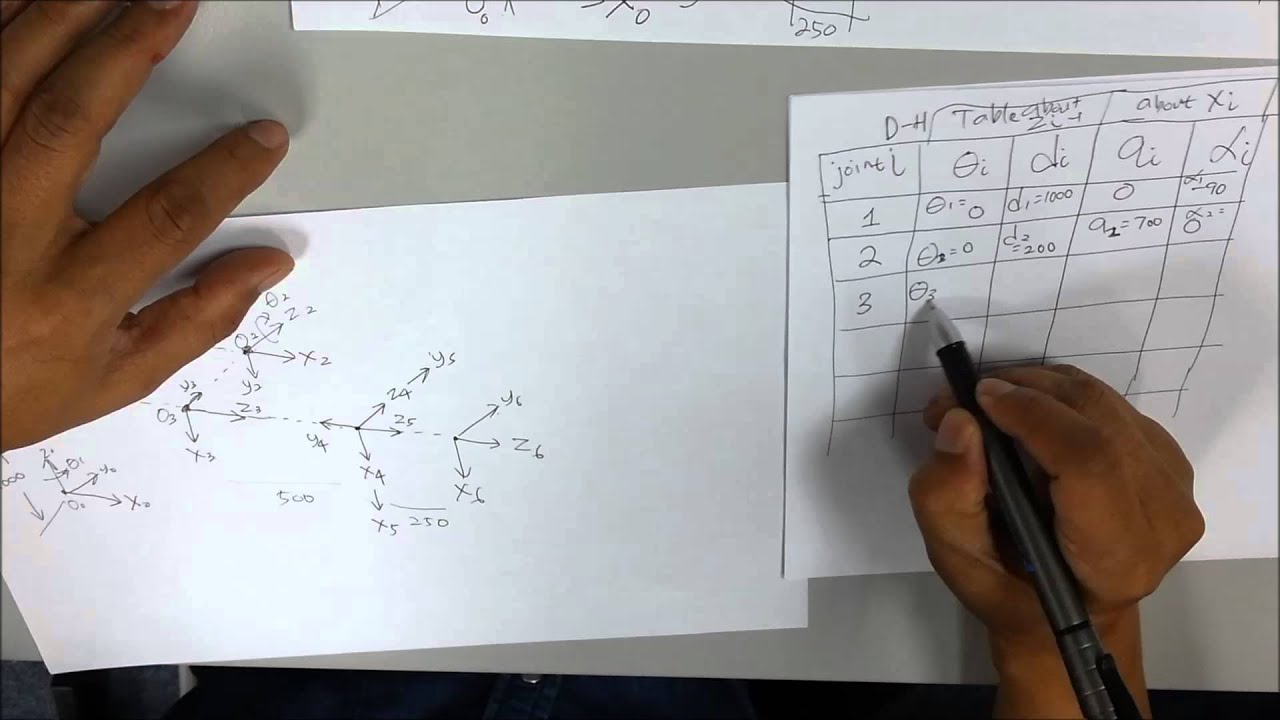 X₀
250
D-H Table about Zi-1 about Xi
joint i θi di ai αi
1 θ1=0 d1=1000 0 α1 -90
2 θ2=0 d2=200 a2=700 α2=0
3 θ3
θ2
Z2
O2 X2
y2
y5
y3
Z4
O3 Z3
y6
y4 Z5
Z6
X3
X4
X6
θ1 y0
O0 X0
500
X5 250